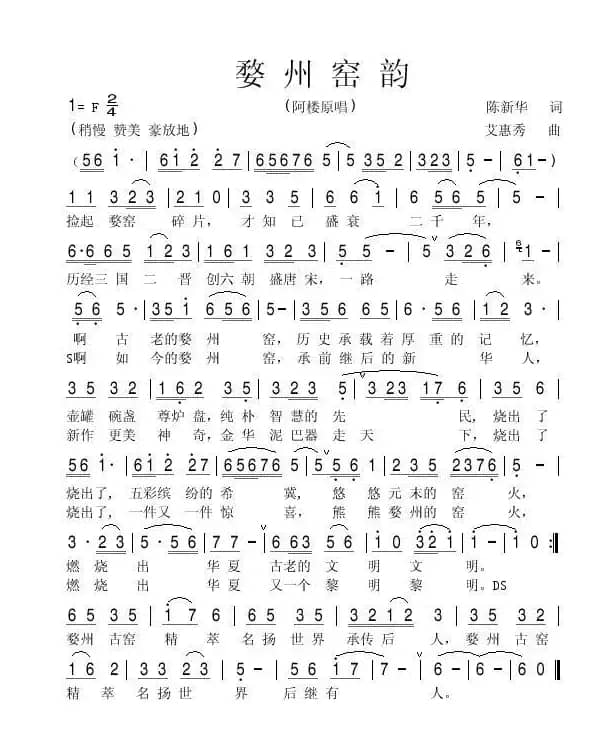 婺州窑韵
(阿楼原唱)
1=F 2/4 陈新华 词
(稍慢 赞美 豪放地) 艾惠秀 曲
(56 1· | 612 27 | 65676 5 | 5 352 | 323 5 | 5 - | 61- )
11 323 | 210 | 3 35 | 6 61 | 6 565 | 5 - |
捡起 婺窑 碎片, 才知已 盛衰 二千 年,
6·665 | 35 223 | 1161 | 352 | 5 5 - | 5 326 | 1 - |
历经三国二晋 创六朝 盛唐宋,一路 走 来。
56 5· | 351 656 | 5 - | 3565 356 | 6·56 | 12 3· |
啊 古 老的婺州 窑,历史承载着厚重的记忆,
S啊 如 今的婺州 窑,承前继后的新 华人,
35 32 | 1162 235 | 65 322 | 5 323 176 | 6· 56 |
壶罐 碗盏 尊炉盘,纯朴 智慧的先 民,烧出了
新作 更美 神奇,金华 泥巴器走天 下,烧出了
56 1· | 612 27 | 65676 5 | 5 556 1 | 235 2376 | 5 - |
烧出了, 五彩缤 纷的希 冀, 悠 悠元末的窑 火,
烧出了, 一件又 一件惊 喜, 熊 熊婺州的窑 火,
3· 23 | 5· 56 | 77 - | 663 56 | 10 321 | 1 - | 10 :‖
燃 烧 出 华夏 古老的 文 明文 明。
燃 烧 出 华夏 又一个 黎 明黎 明。DS
65 35 | 1 7 6 | 65 35 | 3212 3 | 65 35 |
婺州 古窑 精 萃 名扬世界 承传后 人,婺州古窑
1 6 2 | 3 23 5 | 5 · 5 | 56 17 | 7 - | 1 - | 10 ‖
精 萃 名扬世 界 后继有 人。